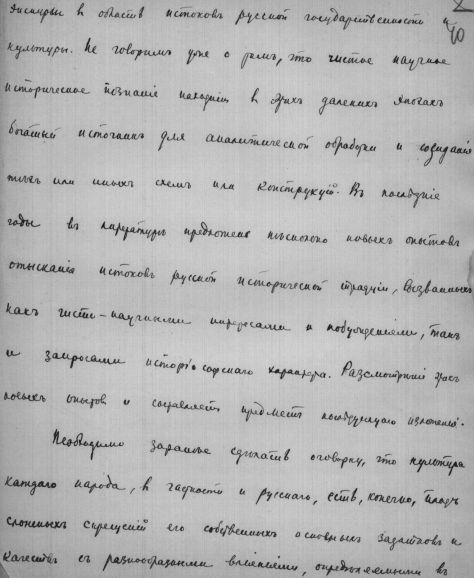 экскурсы въ область истоковъ русской государственности и
40
культуры. Не говоримъ уже о томъ, что чистое научное
историческое познаніе находитъ въ этихъ далекихъ эпохахъ
богатый источникъ для аналитической обработки и созиданія
тѣхъ или иныхъ схемъ или конструкцій. Въ послѣдніе
годы въ литературѣ предложено нѣсколько новыхъ опытовъ
отысканія истоковъ русской исторической традиціи, вызванныхъ
какъ чисто-научными интересами и побужденіями, такъ
и запросами исторіософскаго характера. Разсмотрѣніе этихъ
новыхъ опытовъ и составляетъ предметъ послѣдующаго изложенія.
Необходимо заранѣе сдѣлать оговорку, что культура
каждаго народа, въ частности и русскаго, есть, конечно, плодъ
сложныхъ скрещеній его собственныхъ основныхъ задатковъ и
качествъ съ разнообразными вліяніями, опредѣляемыми въ